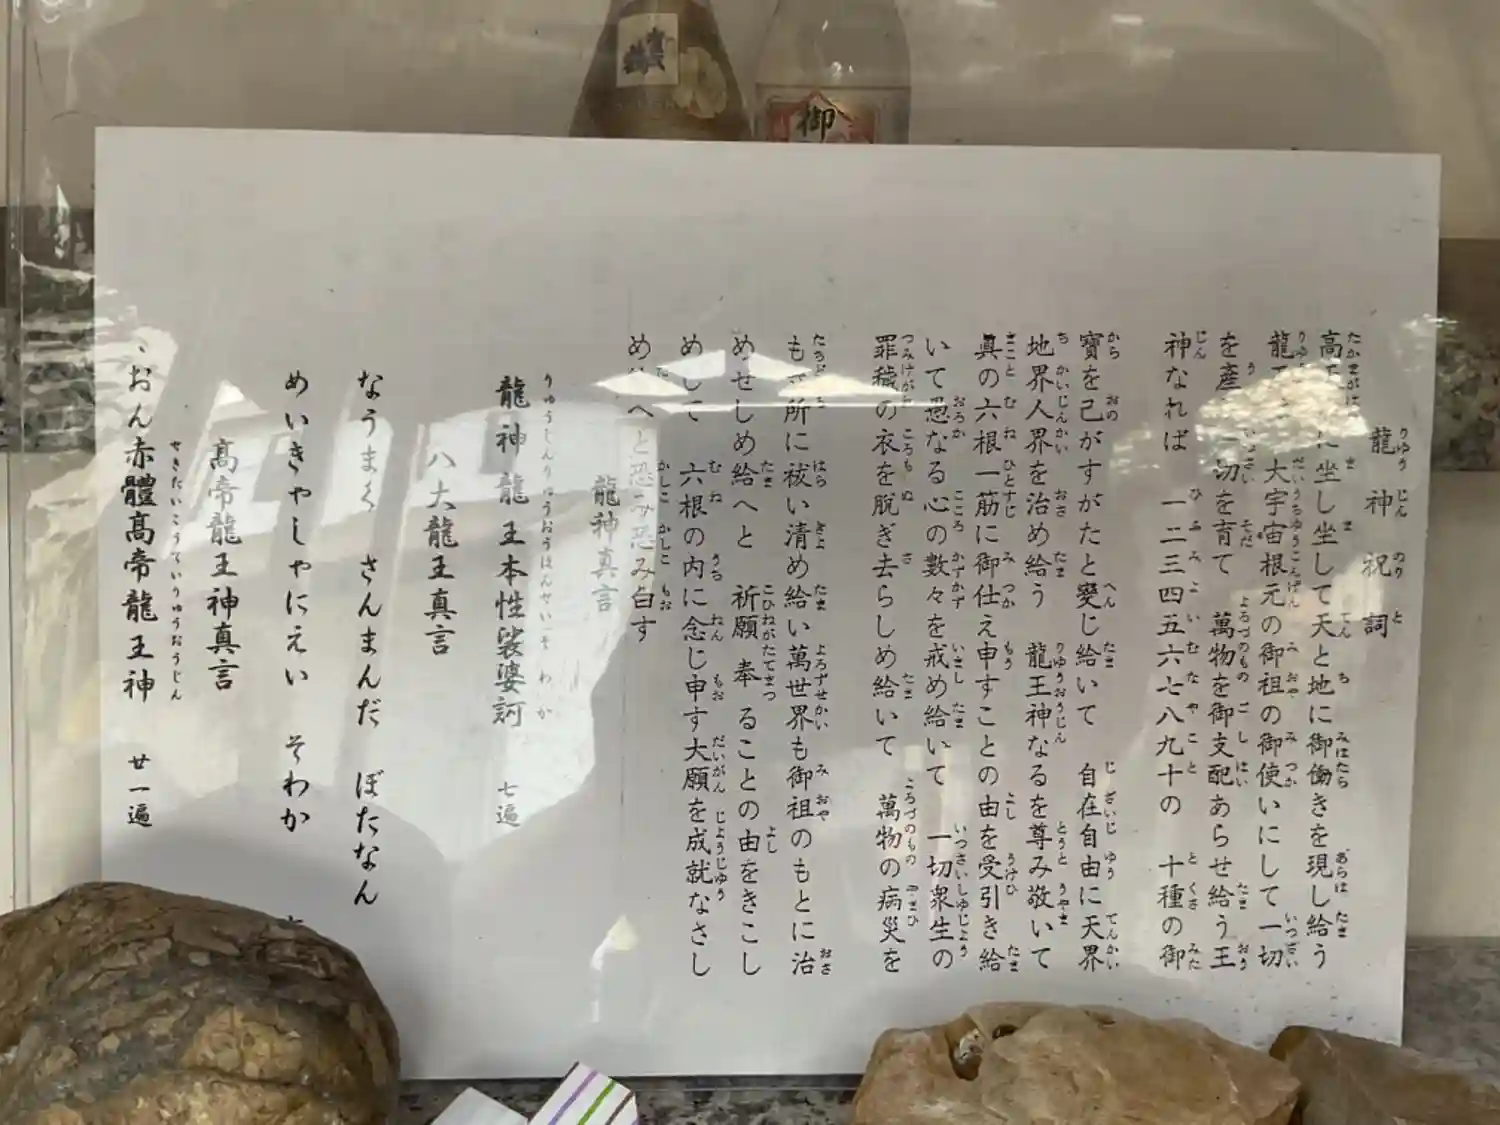 龍神祝詞
高
に坐し坐して天と地に御働きを現し給う
龍
大宇宙根元の御祖の御使いにして一切
を産
切を育て 萬物を御支配あらせ給う王
神なれば 一二三四五六七八九十の 十種の御
寶を己がすがたと變じ給いて 自在自由に天界
地界人界を治め給う 龍王神なるを尊み敬いて
眞の六根一筋に御仕え申すことの由を受引き給
いて愚なる心の数々を戒め給いて 一切衆生の
罪穢の衣を脱ぎ去らしめ給いて 萬物の病災を
も
所に祓い清め給い萬世界も御祖のもとに治
めせしめ給へと 祈願奉ることの由をきこし
めして 六根の内に念じ申す大願を成就なさし
め
へと恐み恐み白す
龍神真言
龍神 龍王本性裟婆訶 七遍
八大龍王真言
なうまく さんまんだ ぼたなん
めいきゃしゃにえい そわか
高帝龍王神真言
おん赤體高帝龍王神 廿一遍
御